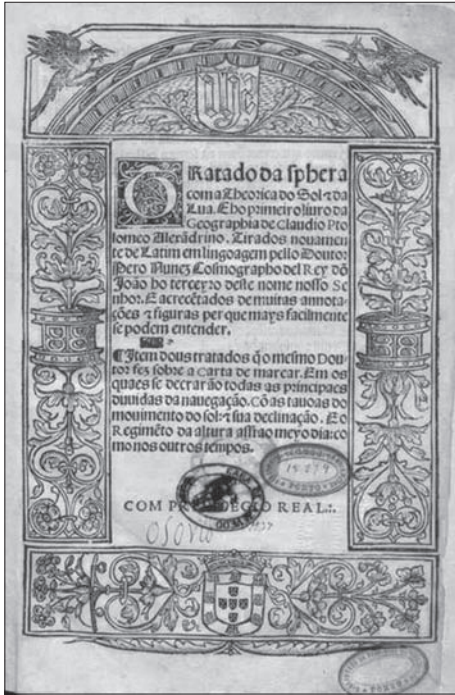 yhs
Tratado da sphera
com a Theorica do Sol ⁊ da
Lua. E ho primeiro liuro da
Geographia de Claudio Pto
lomeo Alexãdrino. Tirados nouamen
te de Latim em lingoagem pello Doutor
Pero Nunez Cosmographo del Rey dõ
João ho terceyro deste nome nosso Se
nhor. E acrecẽtados de muitas annota
ções ⁊ figuras per que mays facilmente
se podem entender.
¶ Item dous tratados q̃ o mesmo Dou
tor fez sobre a carta de marear. Em os
quaes se decrarão todas as principaes
duuidas da nauegação. Cõ as tauoas do
mouimento do sol: ⁊ sua declinação. E o
Regimẽto da altura assi ao meyo dia: co
mo nos outros tempos.
15279
PORTO
COM PREVILEGIO REAL.:.
OSORIO